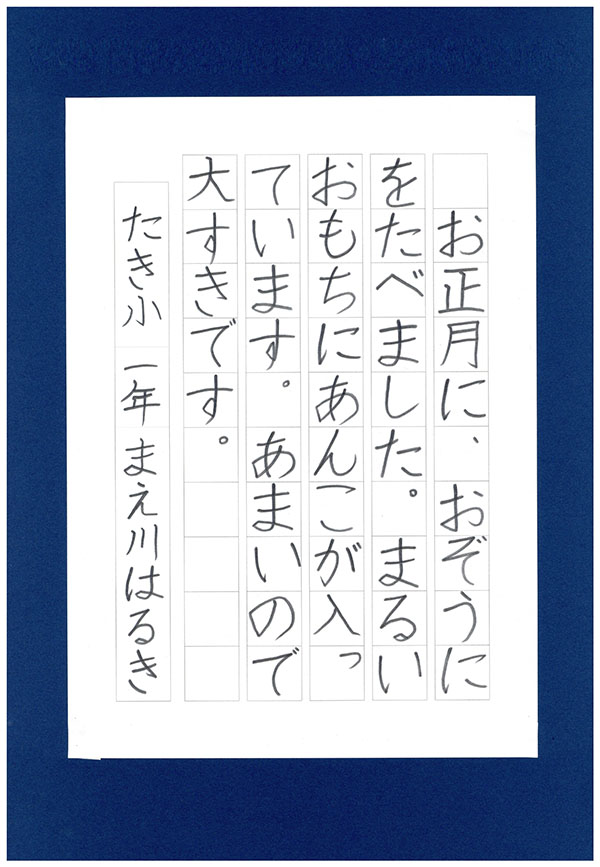 お正月に、おぞうに
をたべました。まるい
おもちにあんこが入っ
ています。あまいので
大すきです。
たき小 一年 まえ川はるき